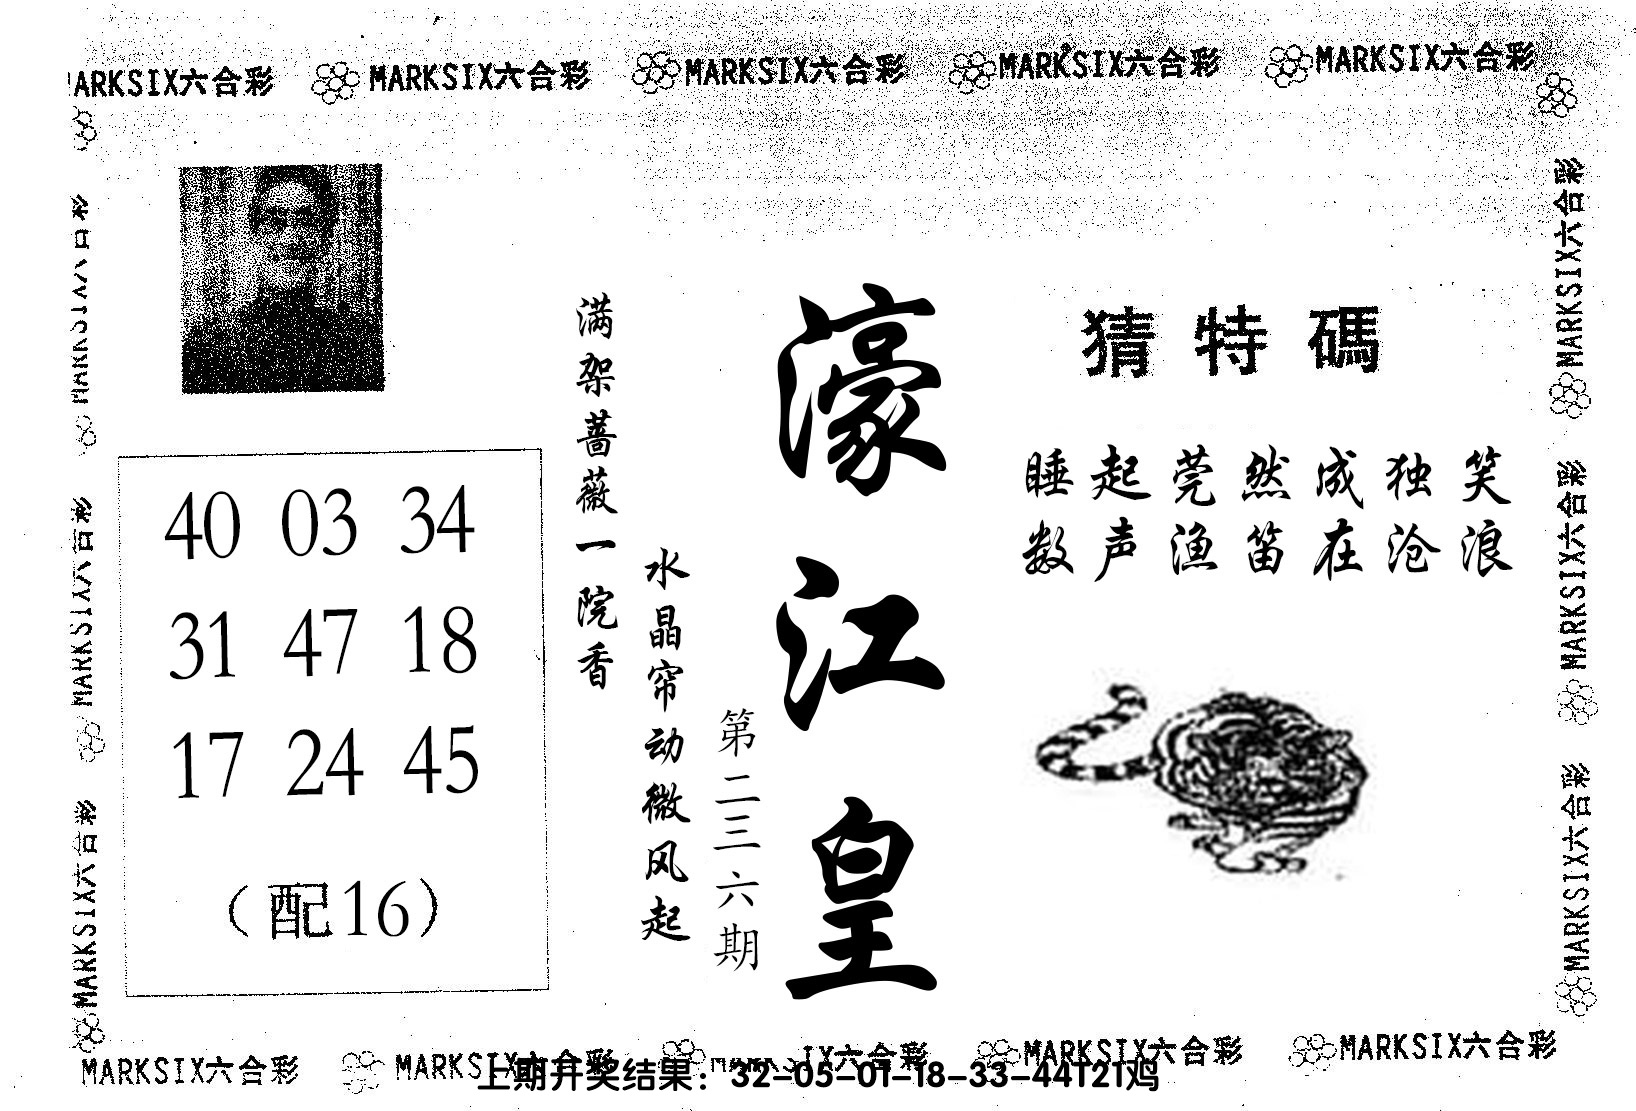 MARKSIX六合彩 MARKSIX六合彩 MARKSIX六合彩 MARKSIX六合彩 MARKSIX六合彩
MARKSIX六合彩
MARKSIX六合彩
MARKSIX六合彩
40 03 34
31 47 18
17 24 45
（配16）
满架蔷薇一院香
水晶帘动微风起
第二三六期
濠江皇
猜特碼
睡起莞然成独笑
数声渔笛在沧浪
MARKSIX六合彩
MARKSIX六合彩
MARKSIX六合彩
MARKSIX六合彩 MARKSIX六合彩 IX六合彩 MARKSIX六合彩 MARKSIX六合彩
上期开奖结果：32-05-01-18-33-44T21鸡